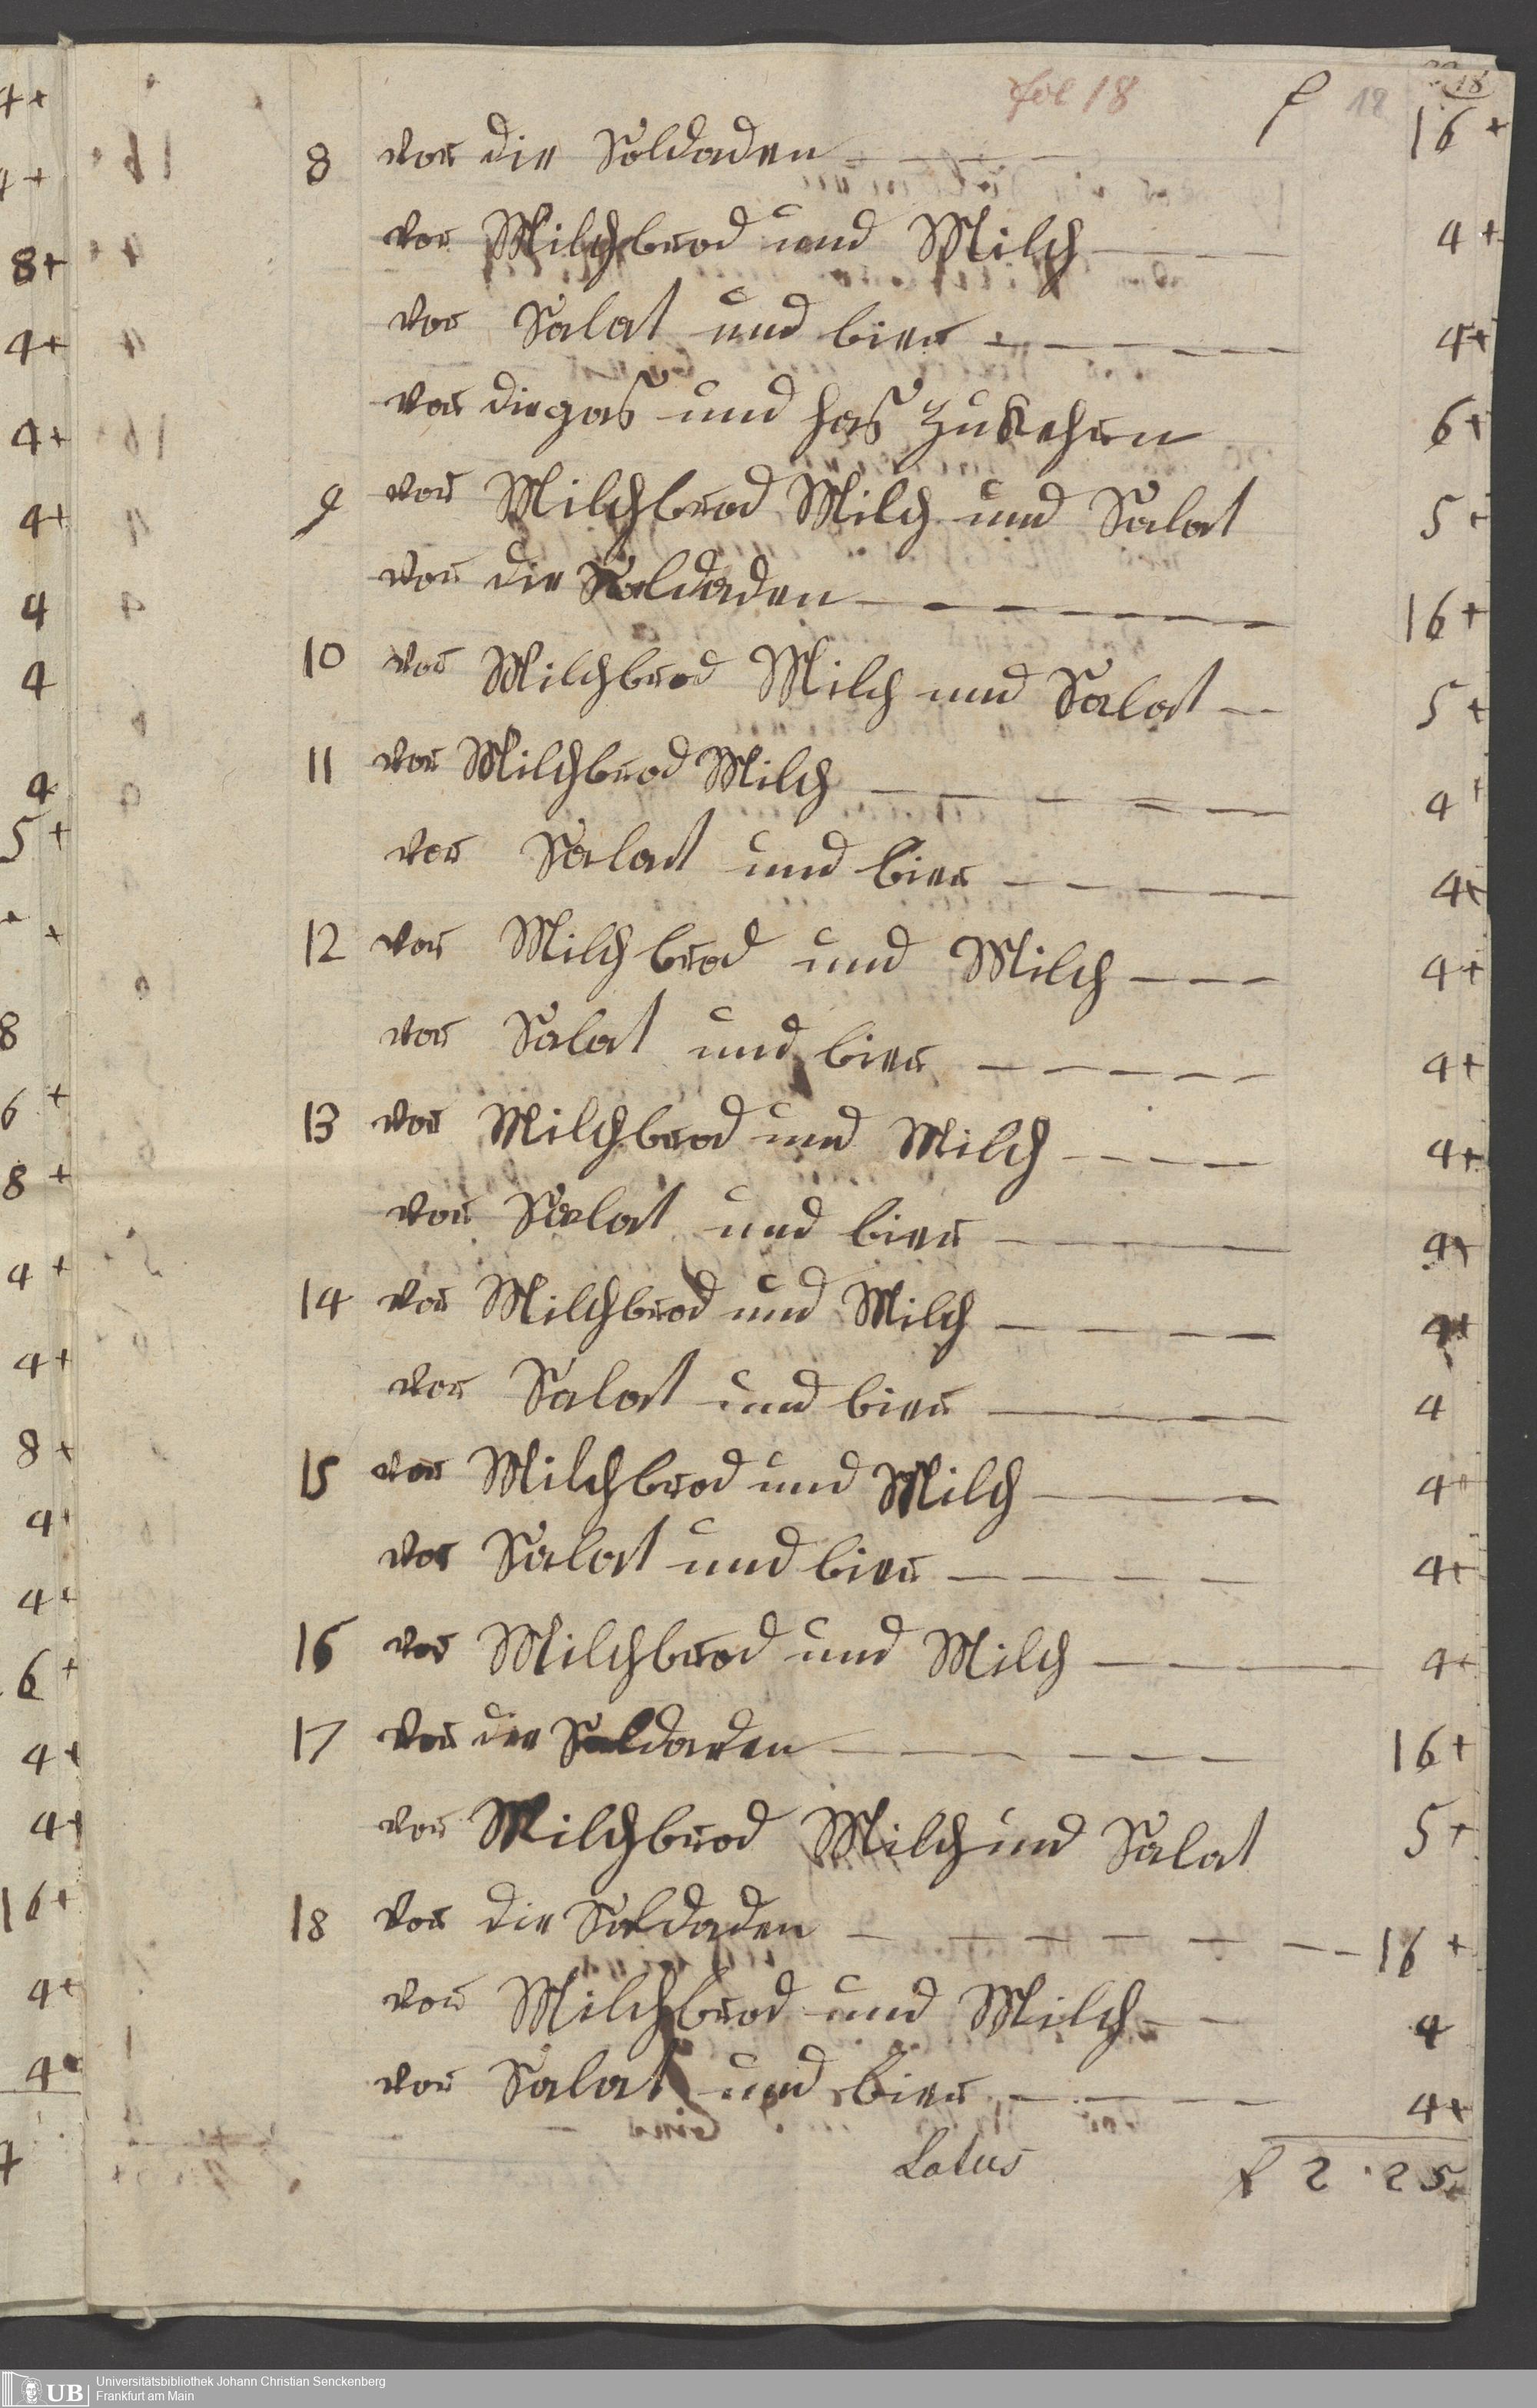 fol 18 f 18 18
8 vor die Soldaden 16 +
vor Milchbrod und Milch 4 +
vor Salat und bier 4+
vor die gas und has zu kehren 6+
9 vor Milchbrod Milch und Salat 5+
vor die Soldaden 16+
10 vor Milchbrod Milch und Salat 5+
11 vor Milchbrod Milch 4+
vor Salat und bier 4+
12 vor Milchbrod und Milch 4+
vor Salat und bier 4+
13 vor Milchbrod und Milch 4+
vor Salat und bier 4+
14 vor Milchbrod und Milch 4+
vor Salat und bier 4
15 vor Milchbrod und Milch 4+
vor Salat und bier 4+
16 vor Milchbrod und Milch 4+
17 vor die Soldaden 16+
vor Milchbrod Milch und Salat 5+
18 vor die Soldaden 16 +
vor Milchbrod und Milch 4
vor Salat und bier 4+
Latus f 2 . 25
UB Universitätsbibliothek Johann Christian Senckenberg
Frankfurt am Main